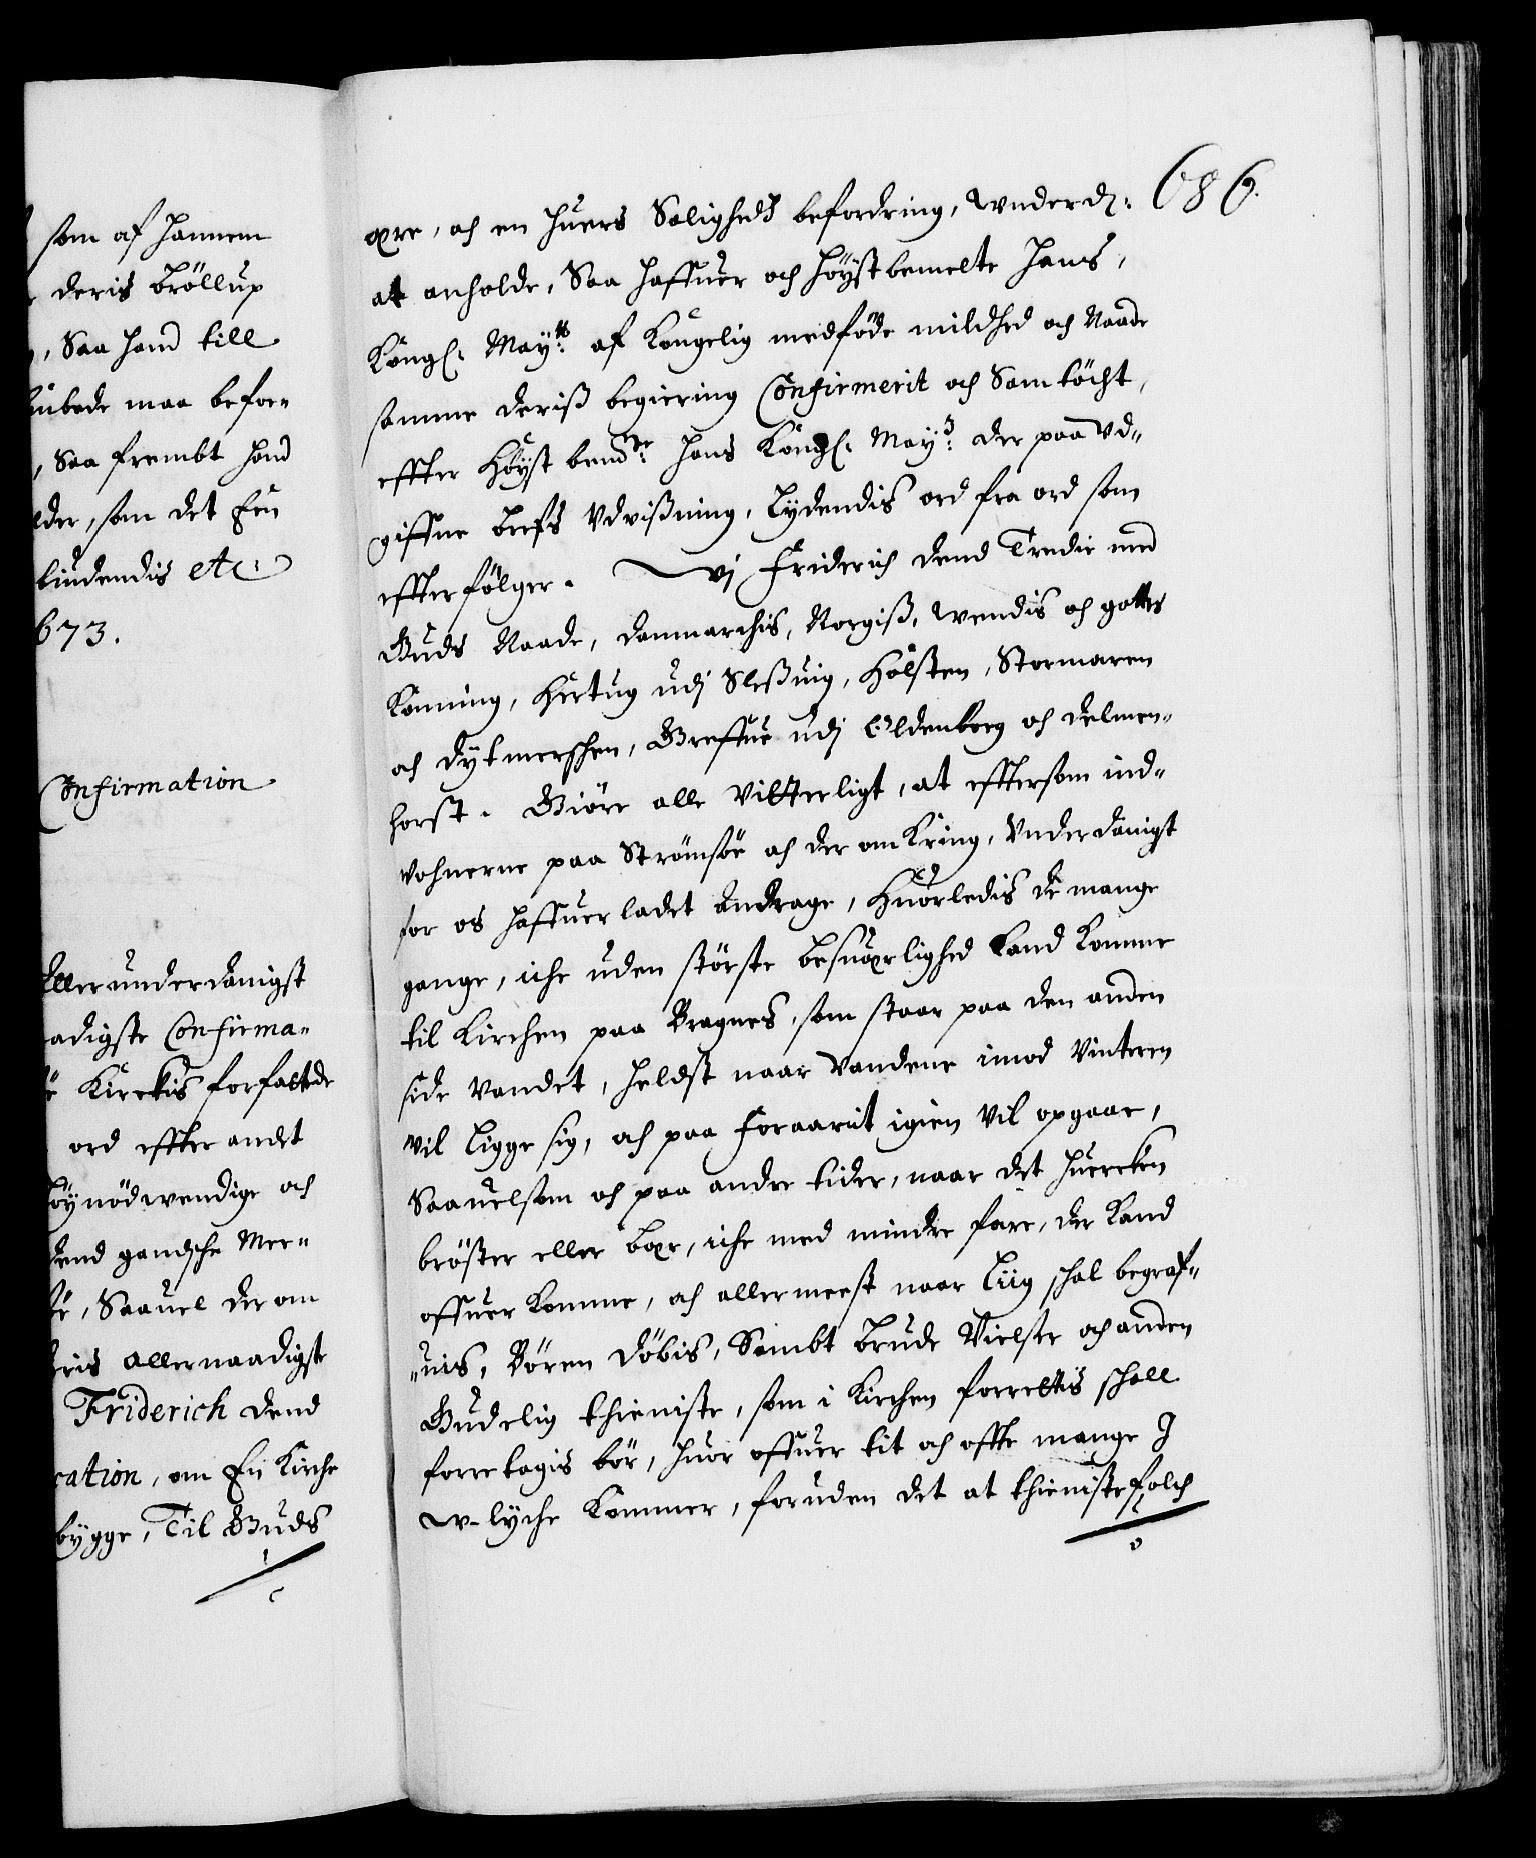 som af hannem
deris bröllup
, Saa hand till
inbede maa befor¬
, Saa frembt hand
lder, som det hen
liudendis etc:
673.
Confirmation
allerunderdanigst
aadigste Confirma¬
Kirckis forfattede
ord effter andet
höynödwendige och
dend gandsche Mee¬
, Saauel der om
eris allernaadigste
Friderich dend
cation, om En Kirche
bygge, Til Guds
686.
ære, och en huers Salighedß befordring, wnderd:
at anholde, Saa haffuer och höystbemelte Hans,
Kongl: May:ts af Kongelig medföde mildhed och Naade
samme deriß begiering Confirmerit och Samtöcht,
effter Höyst bem:te Hans Kongl: May:s der paa Vd¬
giffne brefs Vdvißning, Lydendis ord fra ord som
effterfölger. Vi Friderich dend Tredie med
Guds Naade, Danmarchis, Norgiß, Wendis och gottes
Konning, Hertug udj Sleßuig, Holsten, Stormaren
och Dytmerschen, Greffue udj Oldenborg och Delmen¬
horst. Giöre alle Vitterligt, at efftersom ind¬
vohnerne paa Strömsöe och der omkring, Vnderdanigst
for os haffuer ladet andrage, Huorledis de mange
gange, iche uden störste besuærlighed kand komme
til Kirchen paa Bragnes, som staar paa den anden
side Vandet, heldst naar Vandene imod Vinteren
vil Ligge sig, och paa foraarit igien vil opgaae,
Saauelsom och paa andre tider, naar det huercken
bröster eller bær, iche med mindre fare, der kand
offuer komme, och allermeest naar Liig schal begraf¬
"uis, Börn döbis, Sambt brude Vielse och anden
Gudelig thieniste, som i Kirchen forrettis schall
forretagis bör, huor offuer tit och offte mange J
w-lyche kommer, foruden det at thienistefolch